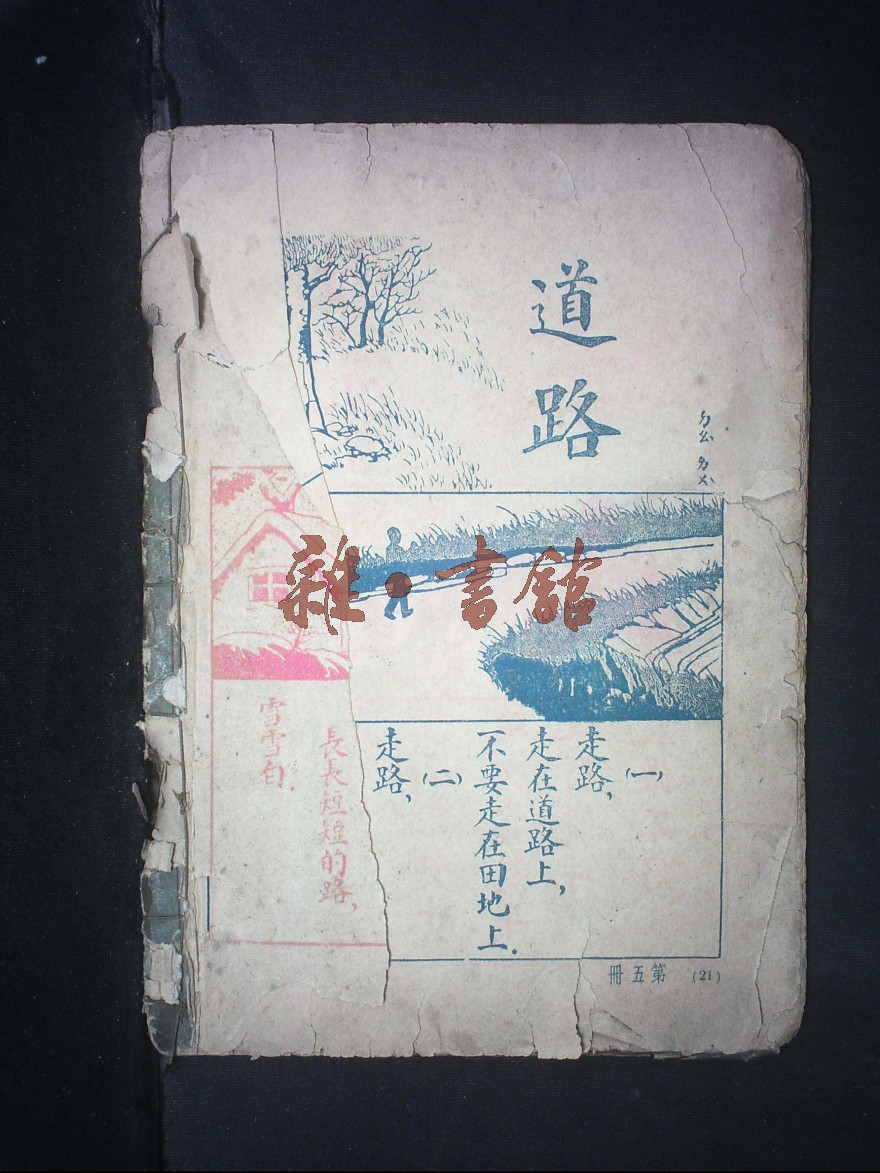 道路
雜·書舘
(一)
走路，
走在道路上，
不要走在田地上．
(二)
走路，
長長短短的路，
雪雪白．
第五冊
(21)